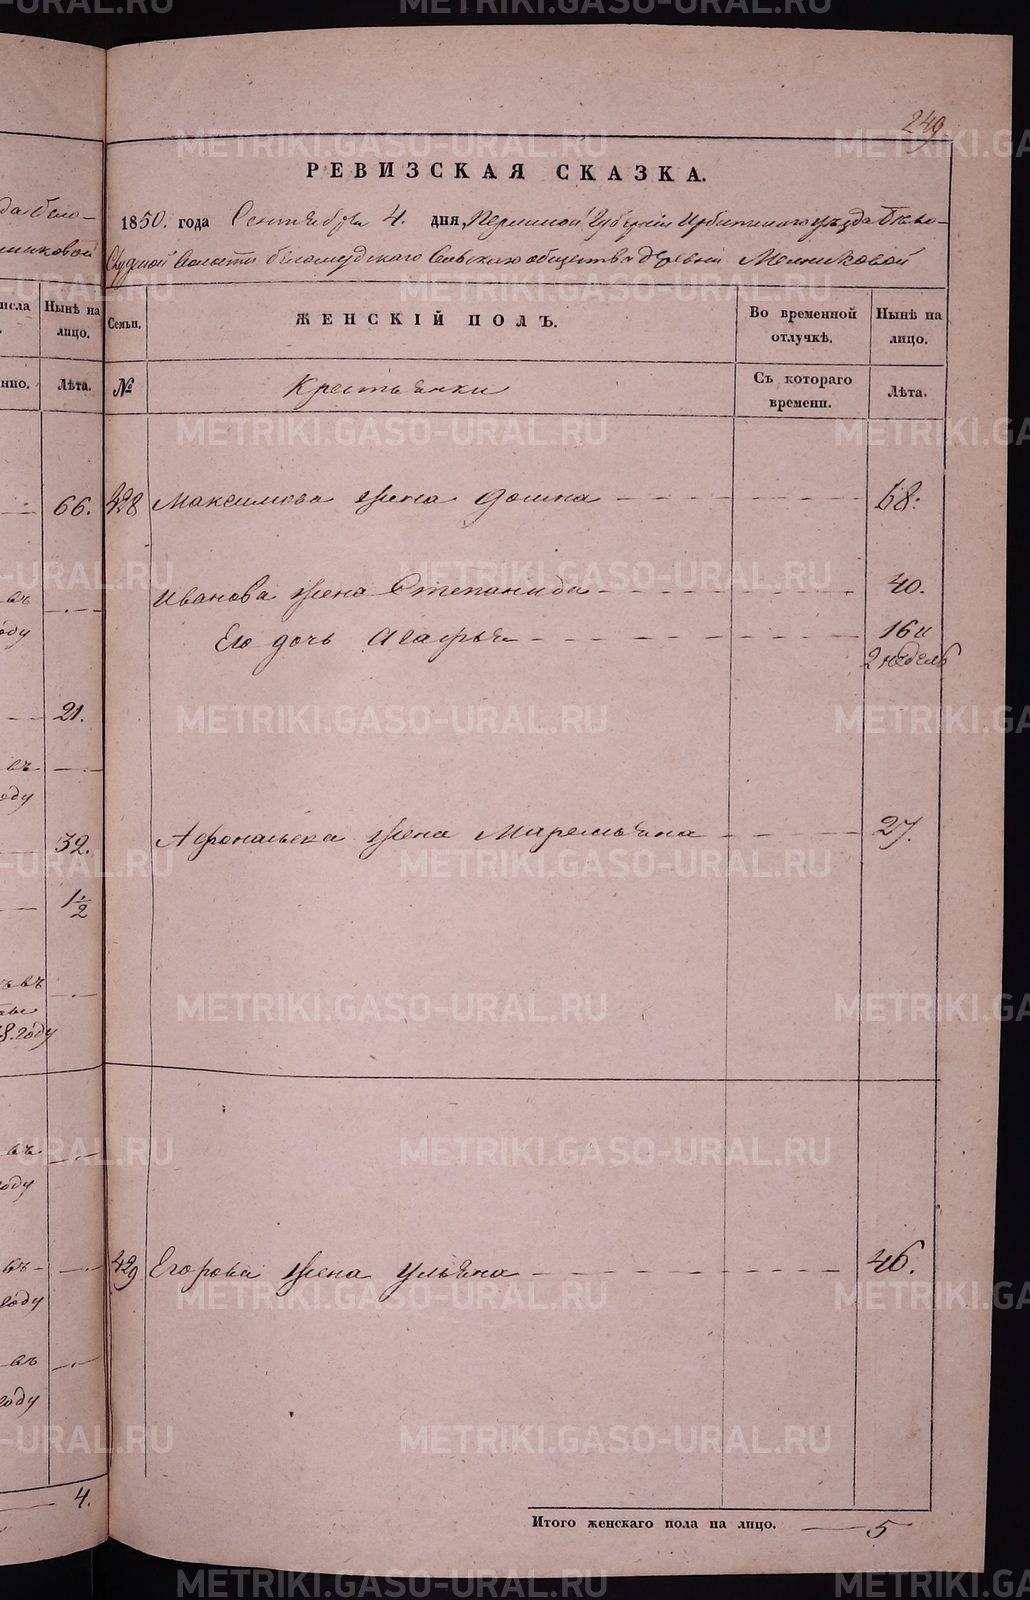 249
РЕВИЗСКАЯ СКАЗКА.
1850. года Сентября 4. дня, Пермской Губернии Ирбитского уѣзда Бѣло-
слудской Волости бѣлослудского Сельского общества деревни Мелниковой
Семьи.
ЖЕНСКІЙ ПОЛЪ.
Во временной отлучкѣ.
Нынѣ на лицо.
№
Крестьянки
Съ котораго времени.
Лѣта.
428 Максимова жена Домна 68.
Иванова жена Степанида 40.
Его дочь Агафья 16 и
2 недель
Афонасьева жена Маремьяна 27.
429 Егорова жена Ульяна 46.
Итого женскаго пола на лицо. 5
Нынѣ на лицо.
Лѣта.
66.
въ
оду
21.
въ
оду
32.
1 1/2
въ
году
въ
оду
въ
году
въ
году
4.
METRIKI.GASO-URAL.RU